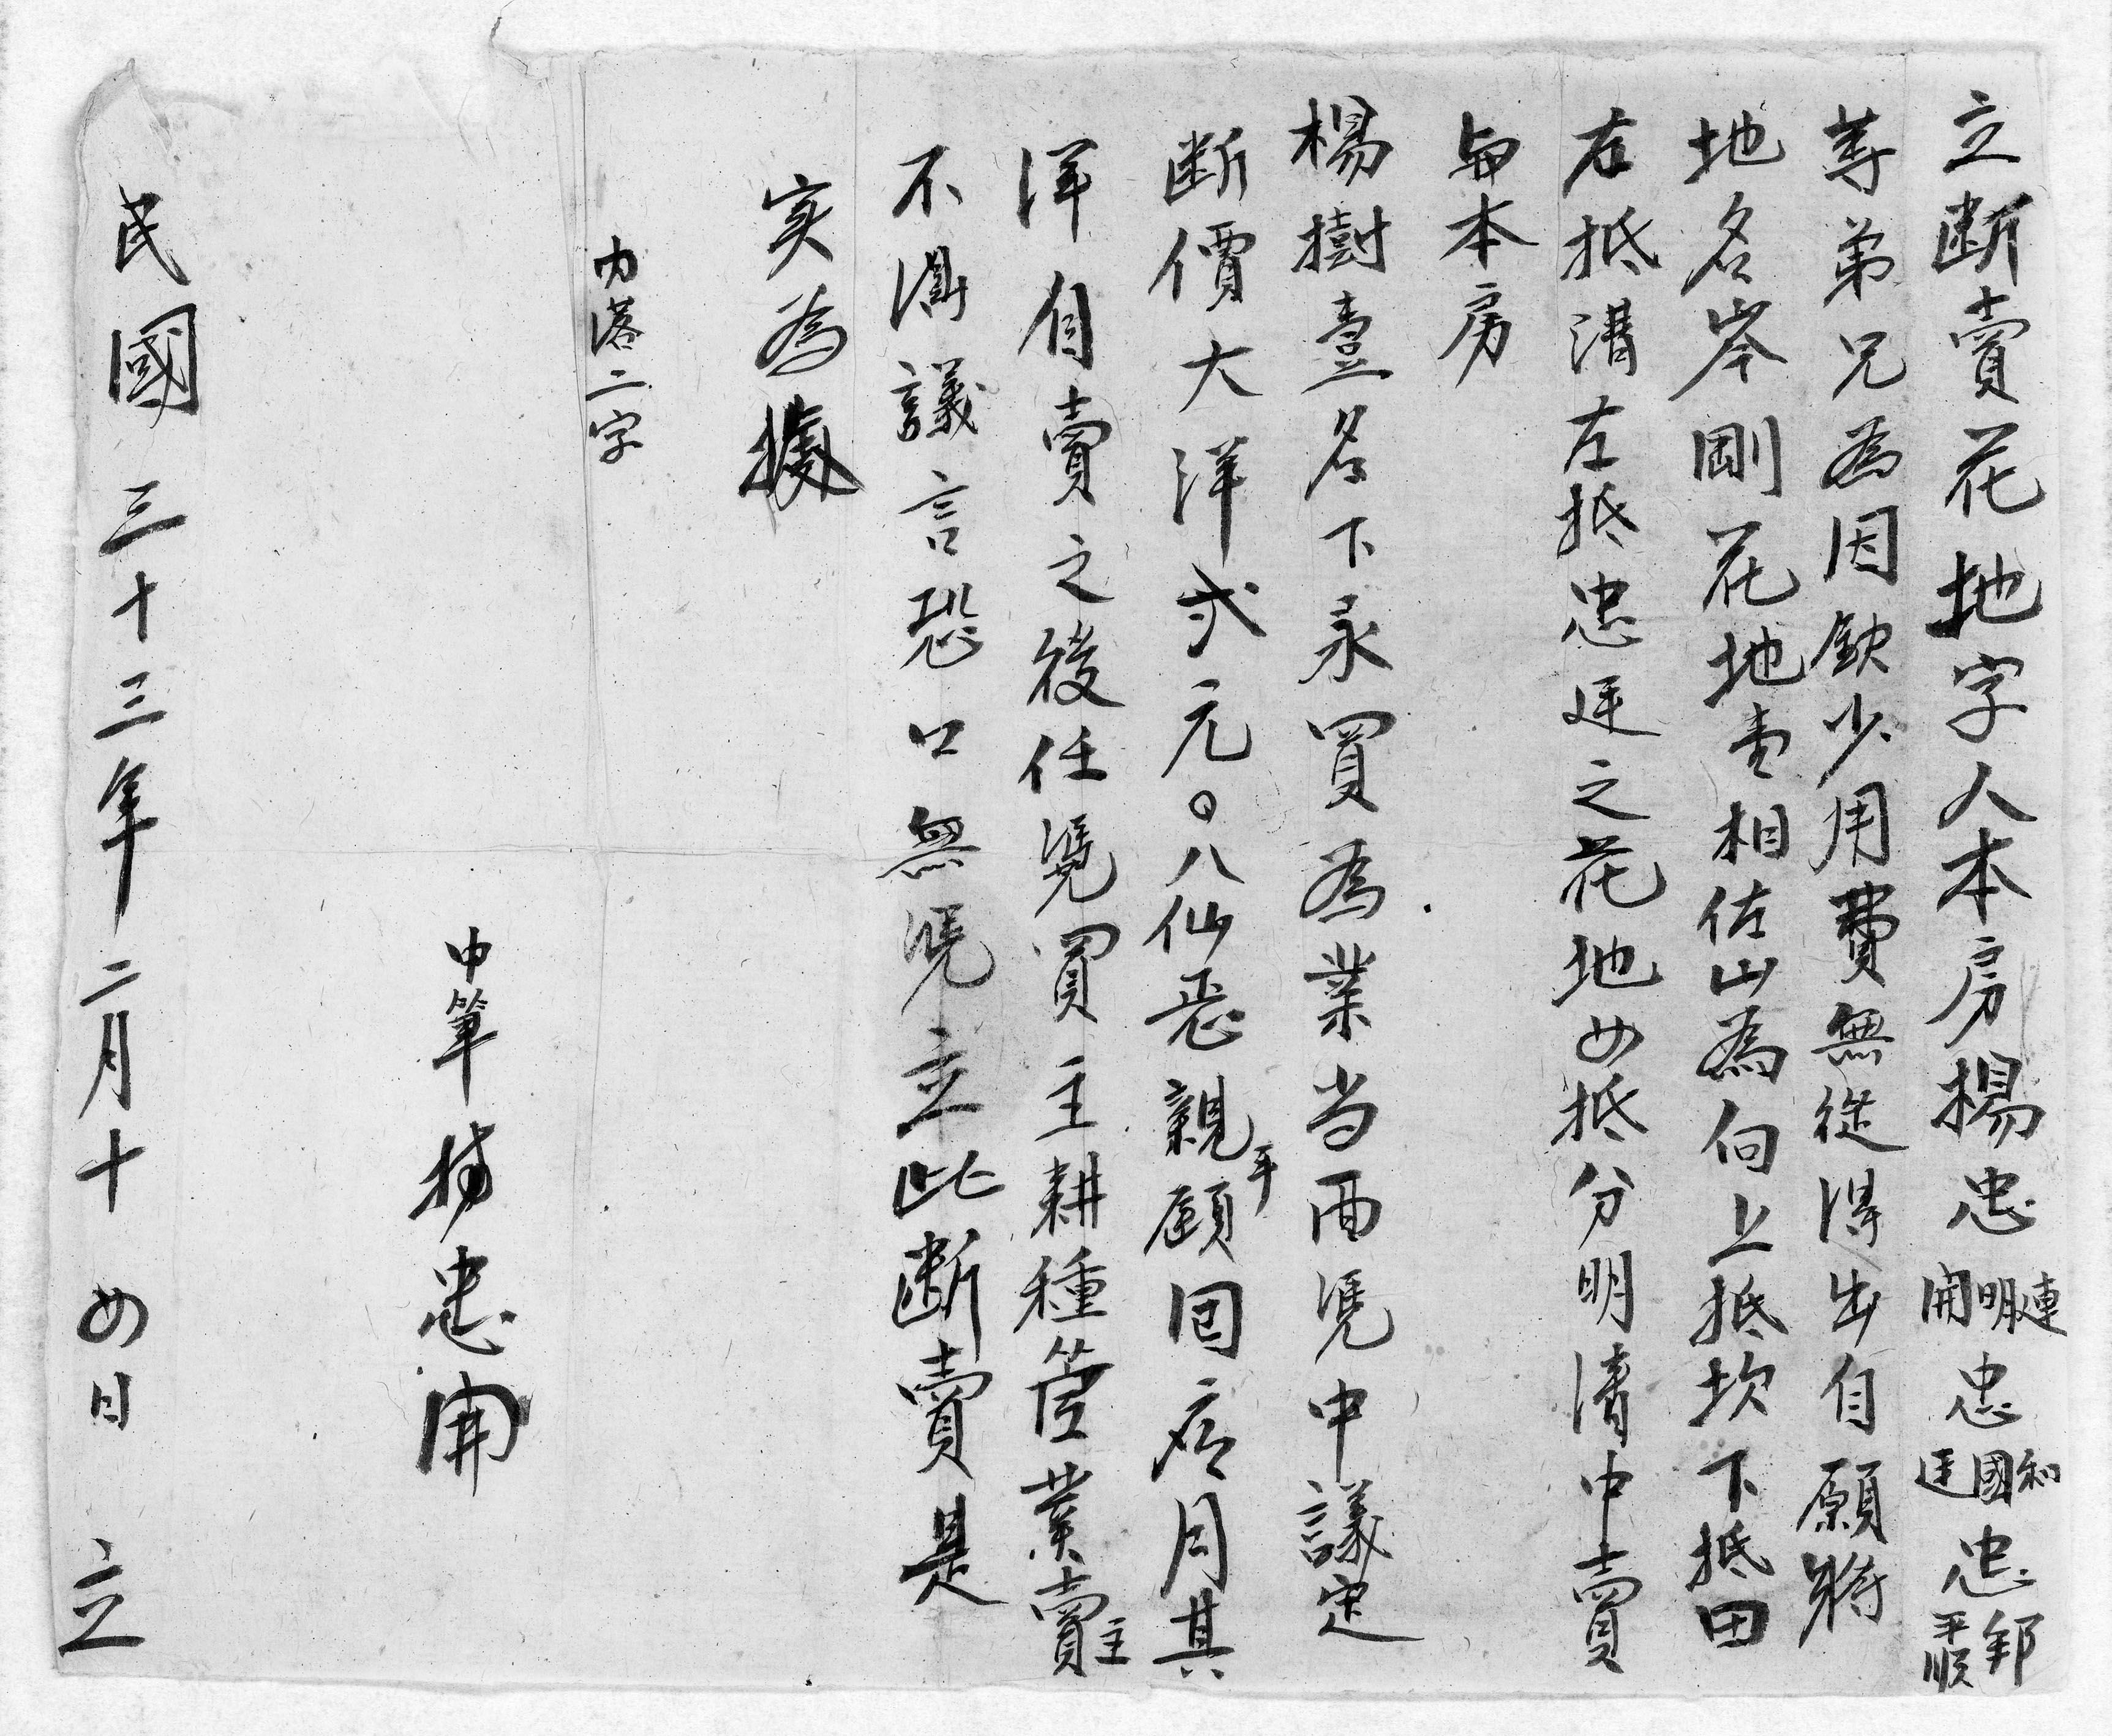 立断賣花地字人本房楊忠連明開忠和國廷忠邦平順
等弟兄為因欽少用費無從得出自願將
地名岑剛花地壹相佐山為向上抵坎下抵田
右抵溝左抵忠廷之花地四抵分明清中賣
與本房
楊樹臺名下永買為業当面凭中議定
断價大洋弍元〇八仙恶親手領回应用其
洋自賣之後任凭買主耕種管業賣主
不淂議言恐口無凭立此断賣是
实為據
内落二字
中筆楊忠開
民國三十三年二月十四日 立